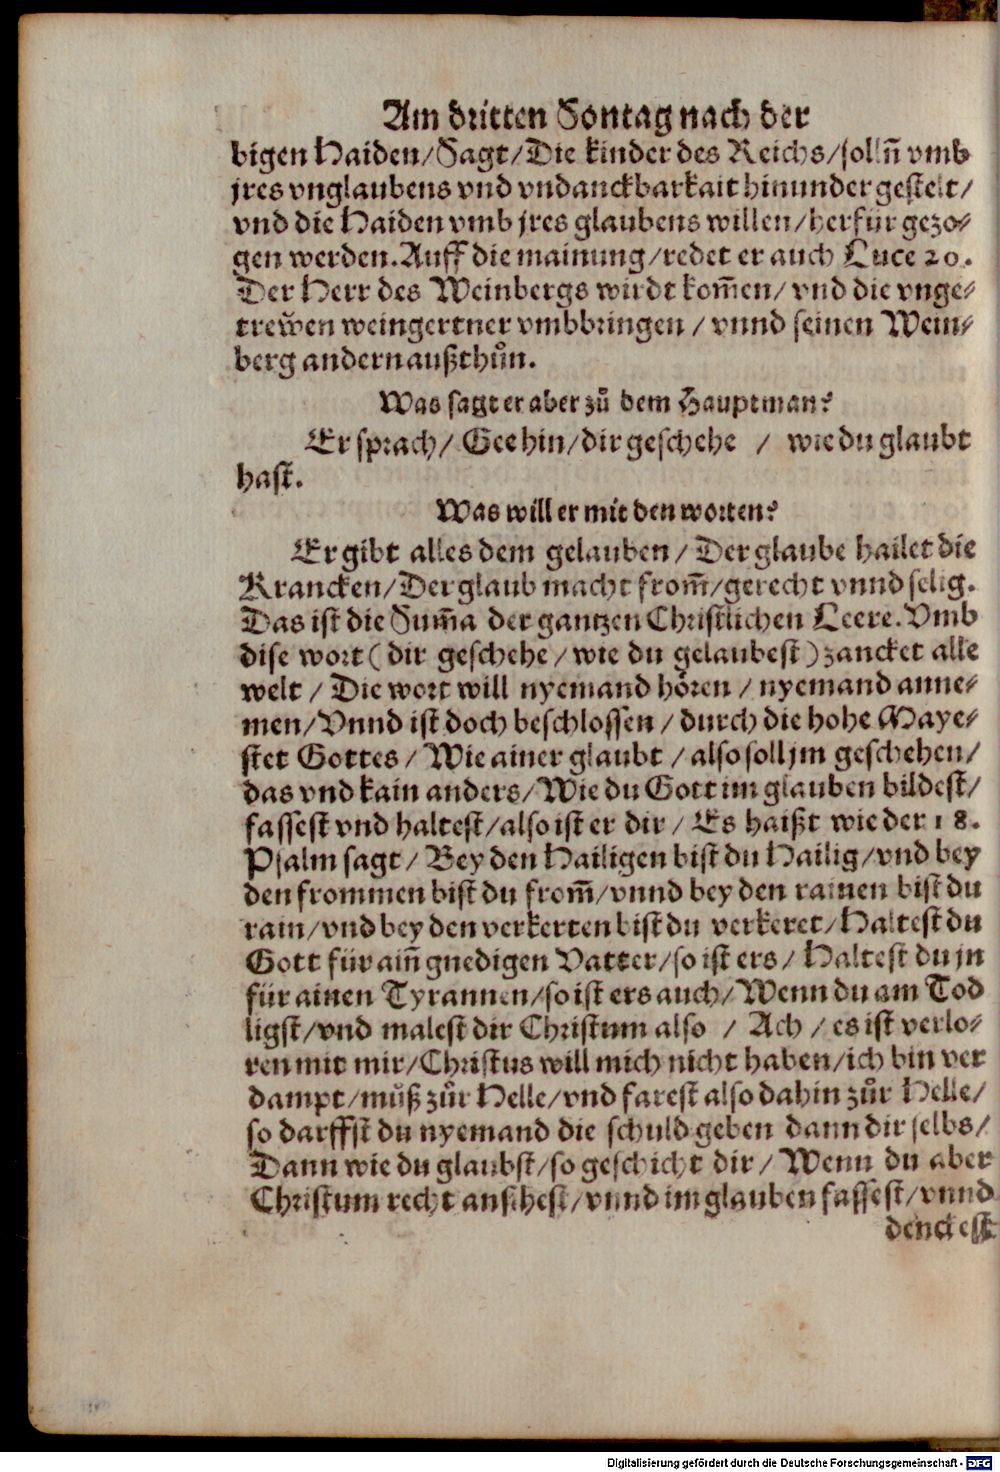 Am dritten Sontag nach der
bigen Haiden/Sagt/Die kinder des Reichs/solln̄ vmb
jres vnglaubens vnd vndanckbarkait hinunder gestelt/
vnd die Haiden vmb jres glaubens willen/herfür gezo⸗
gen werden.Auff die mainung/redet er auch Luce 20.
Der Herr des Weinbergs wirdt kom̄en/ vnd die vnge⸗
trew̆en weingertner vmbbringen / vnnd seinen Wein⸗
berg andern außthůn.
Was sagt er aber zů dem Hauptman?
Er sprach/ Gee hin/dir geschehe / wie du glaubt
hast.
Was will er mit den worten?
Er gibt alles dem gelauben / Der glaube hailet die
Krancken/Der glaub macht from̄/gerecht vnnd selig.
Das ist die Sum̄a der gantzen Christlichen Leere.Vmb
dise wort ( dir geschehe / wie du gelaubest ) zancket alle
welt / Die wort will nyemand hören / nyemand anne⸗
men/Vnnd ist doch beschlossen / durch die hohe Maye⸗
stet Gottes / Wie ainer glaubt / also soll jm geschehen/
das vnd kain anders/Wie du Gott im glauben bildest/
fassest vnd haltest/also ist er dir / Es haißt wie der 18.
Psalm sagt / Bey den Hailigen bist du Hailig/vnd bey
den frommen bist du from̄/vnnd bey den rainen bist du
rain/vnd bey den verkerten bist du verkeret/Haltest du
Gott für ain̄ gnedigen Vatter/so ist ers/ Haltest du jn
für ainen Tyrannen/so ist ers auch/Wenn du am Tod
ligst/vnd malest dir Christum also / Ach / es ist verlo⸗
ren mit mir/Christus will mich nicht haben/ich bin ver
dampt/můß zůr Helle/vnd farest also dahin zůr Helle/
so darffst du nyemand die schuld geben dann dir selbs/
Dann wie du glaubst/so geschicht dir / Wenn du aber
Christum recht ansihest/vnnd im glauben fassest/vnnd
denckest
Digitalisierung gefördert durch die Deutsche Forschungsgemeinschaft - DFG